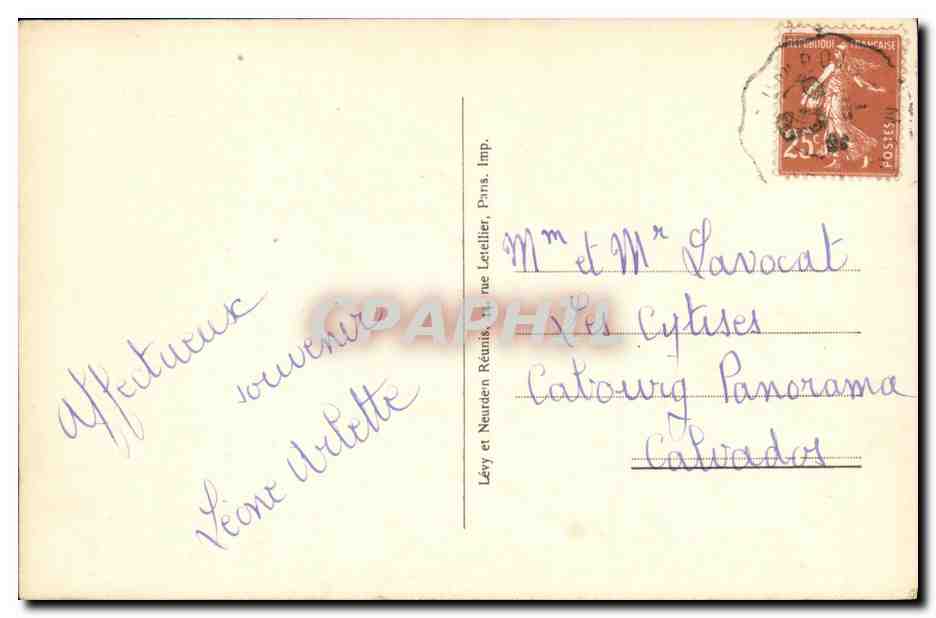 Affectueux
souvenir
Léone Arlette
Lévy et Neurdein Réunis, rue Letellier, Paris. Imp.
RÉPUBLIQUE FRANÇAISE
25c
POSTES
Mm et Mr Lavocat
Les Cytises
Cabourg Panorama
Calvados
CPAPHIL